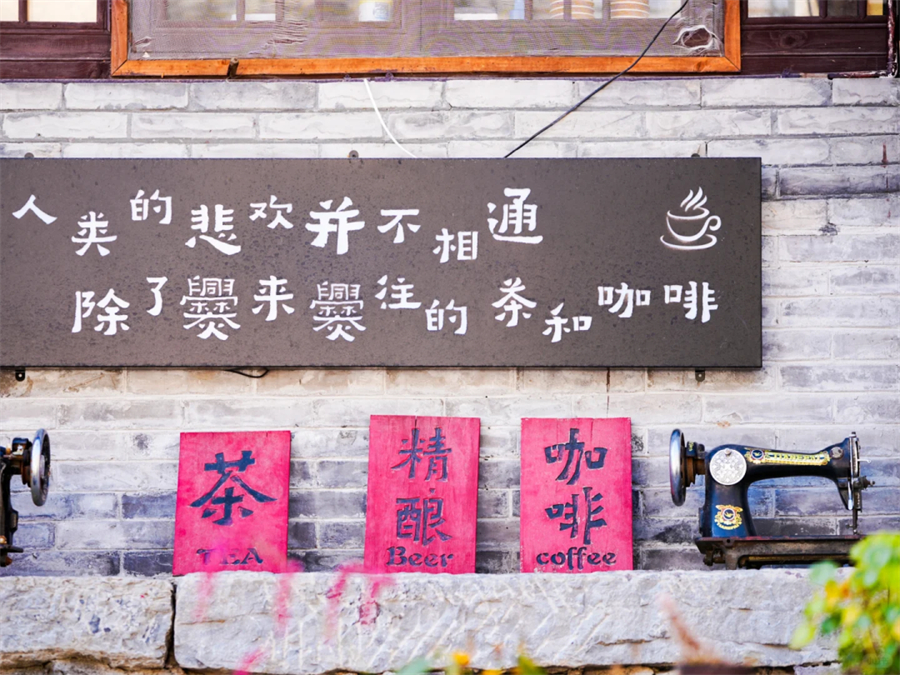 人类的悲欢并不相通
除了爨来爨往的茶和咖啡
茶
TEA
精
酿
Beer
咖
啡
coffee